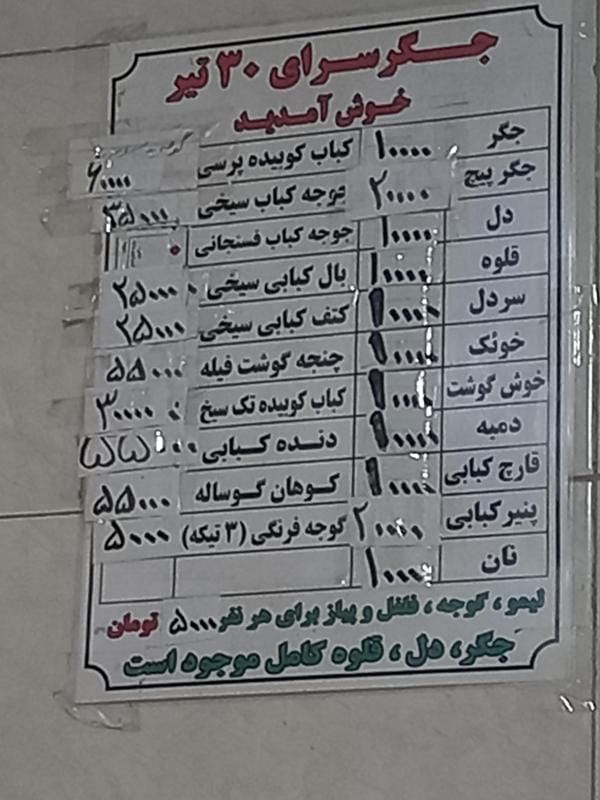 جگرسرای ۳۰ تیر
خوش آمدید
جگر ۱۰۰۰۰ کباب کوبیده پرسی ۶۰۰۰۰
جگر پیچ ۲۰۰۰۰ جوجه کباب سیخی ۳۵۰۰۰
دل ۱۰۰۰۰ جوجه کباب فسنجانی
قلوه ۱۰۰۰۰ بال کبابی سیخی ۲۵۰۰۰
سردل ۱۰۰۰۰ کتف کبابی سیخی ۲۵۰۰۰
خوئک ۱۰۰۰۰ چنجه گوشت فیله ۵۵۰۰۰
خوش گوشت ۱۰۰۰۰ کباب کوبیده تک سیخ ۳۰۰۰۰
دمبه ۱۰۰۰۰ دنده کبابی ۵۵۰۰۰
قارچ کبابی ۱۰۰۰۰ کوهان گوساله ۵۵۰۰۰
پنیر کبابی ۲۰۰۰۰ گوجه فرنگی (۳ تیکه) ۵۰۰۰
نان ۱۰۰۰۰
لیمو ، گوجه ، فلفل و پیاز برای هر نفر ۵۰۰۰ تومان
جگر، دل ، قلوه کامل موجود است